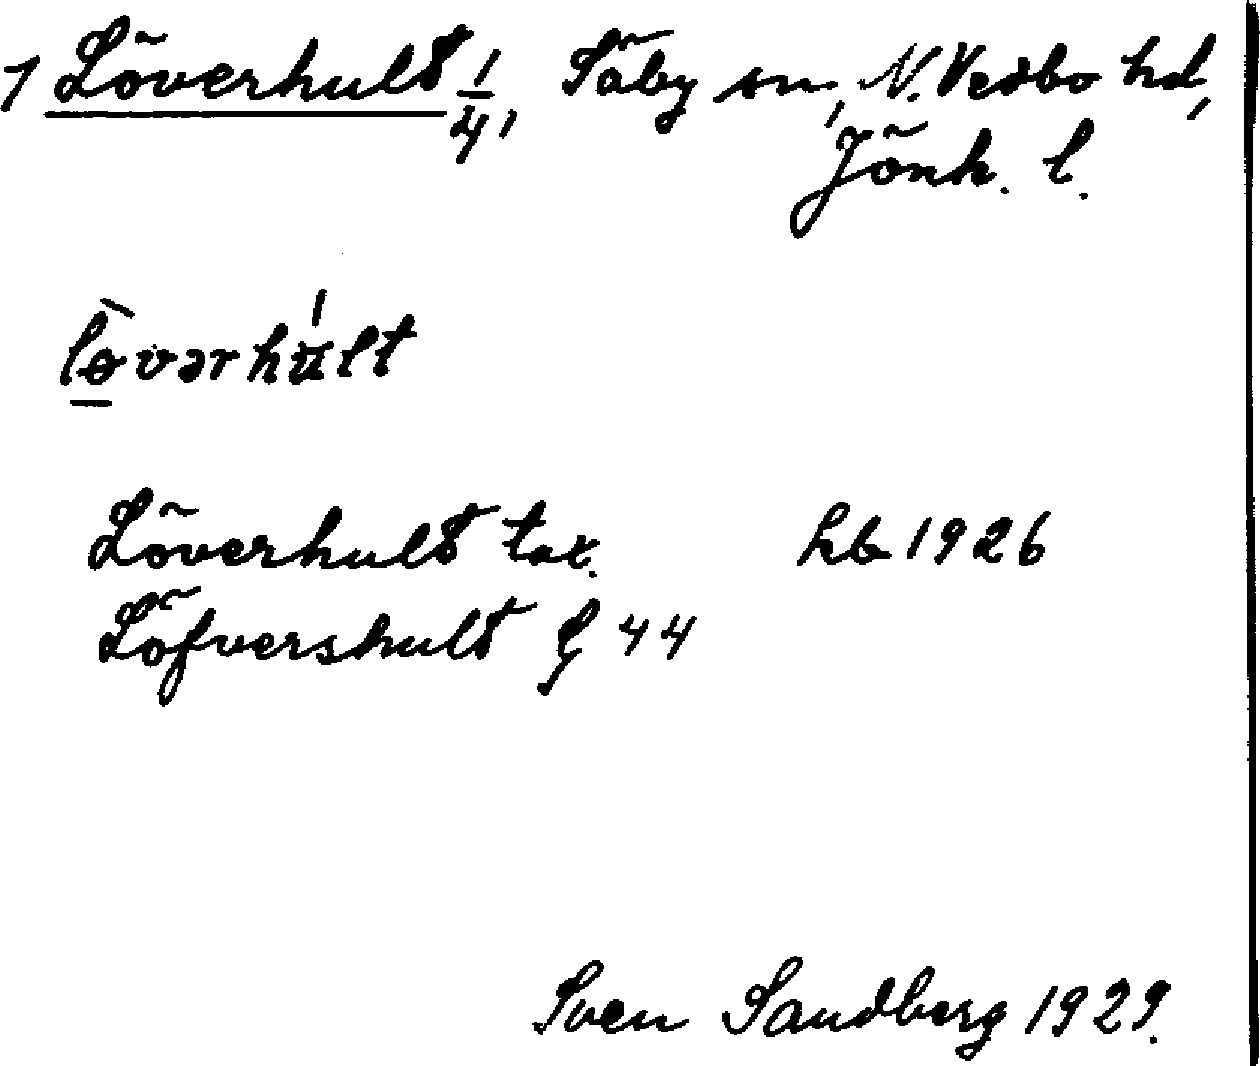 1 Löverhult 1/4, Säby sn, N. Vedbo hd,
Jönk. l.
lø̀vərhu̍lt
Löverhult tax. hb 1926
Löfvershult G 44
Sven Sandberg 1929.